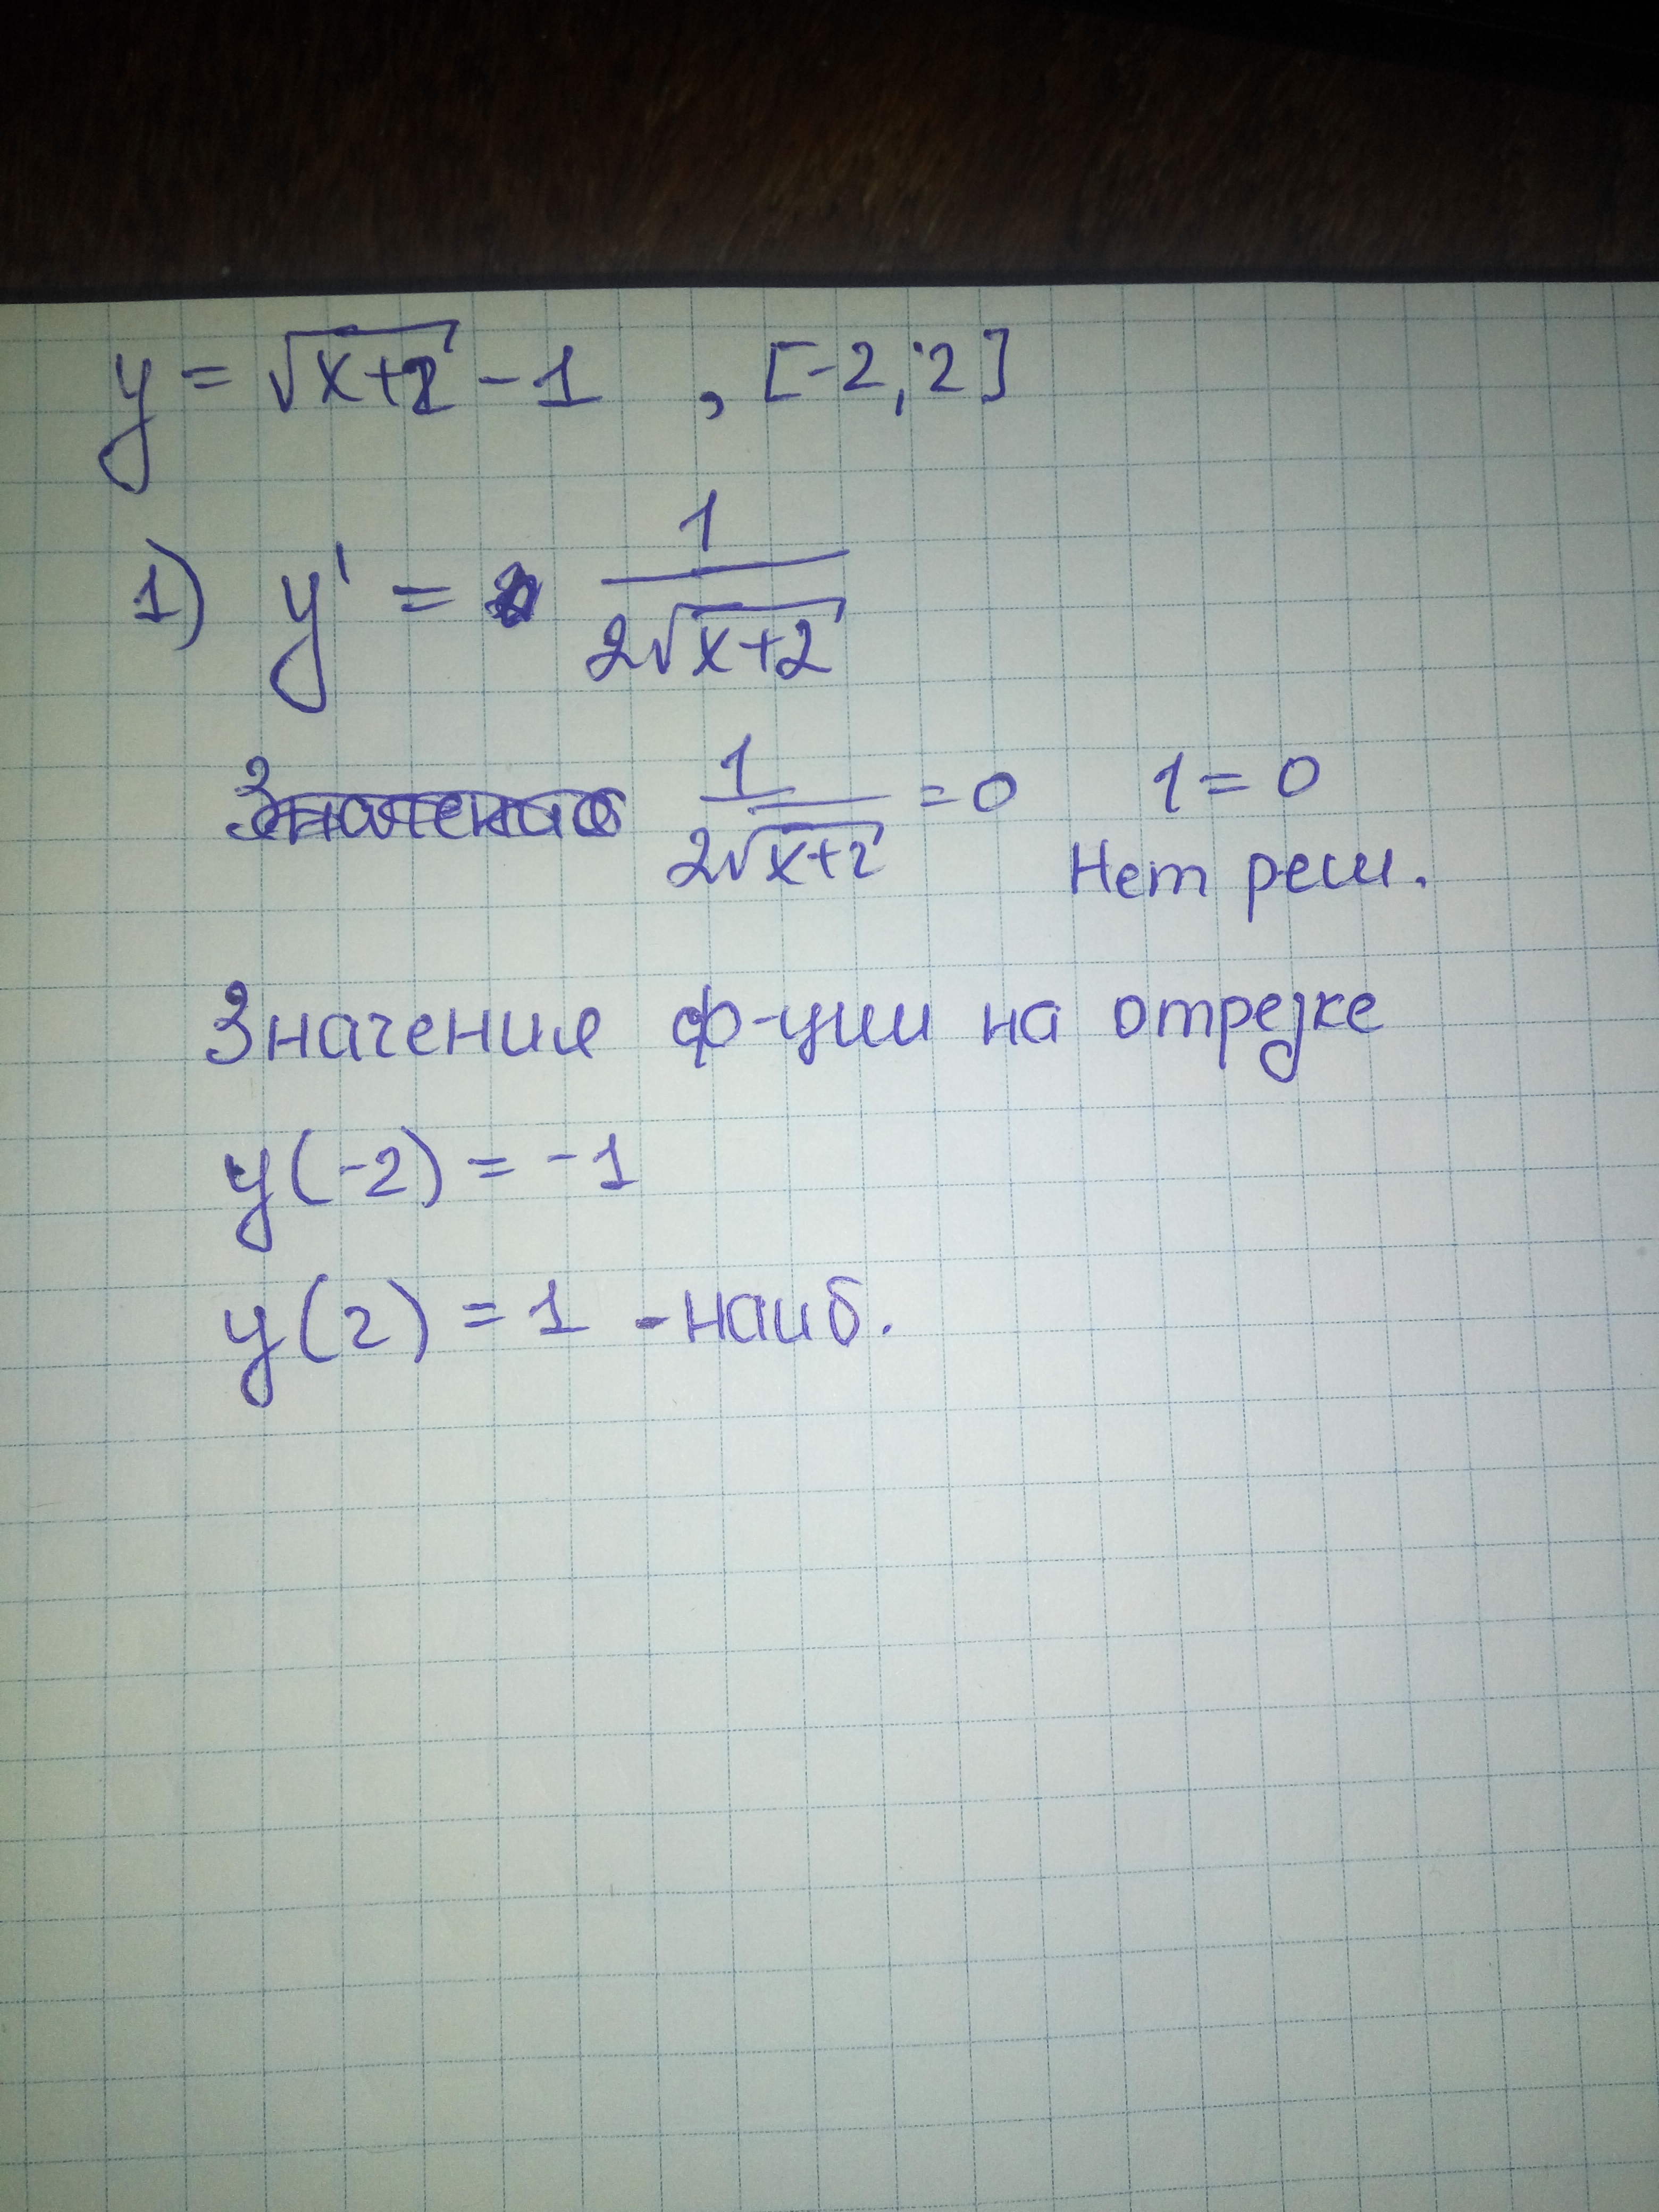 y = √x+2 - 1 , [-2; 2]
1) y' = 1/2√x+2
1/2√x+2 = 0 1 = 0
Нет реш.
Значения ф-ции на отрезке
y(-2) = -1
y(2) = 1 - наиб.